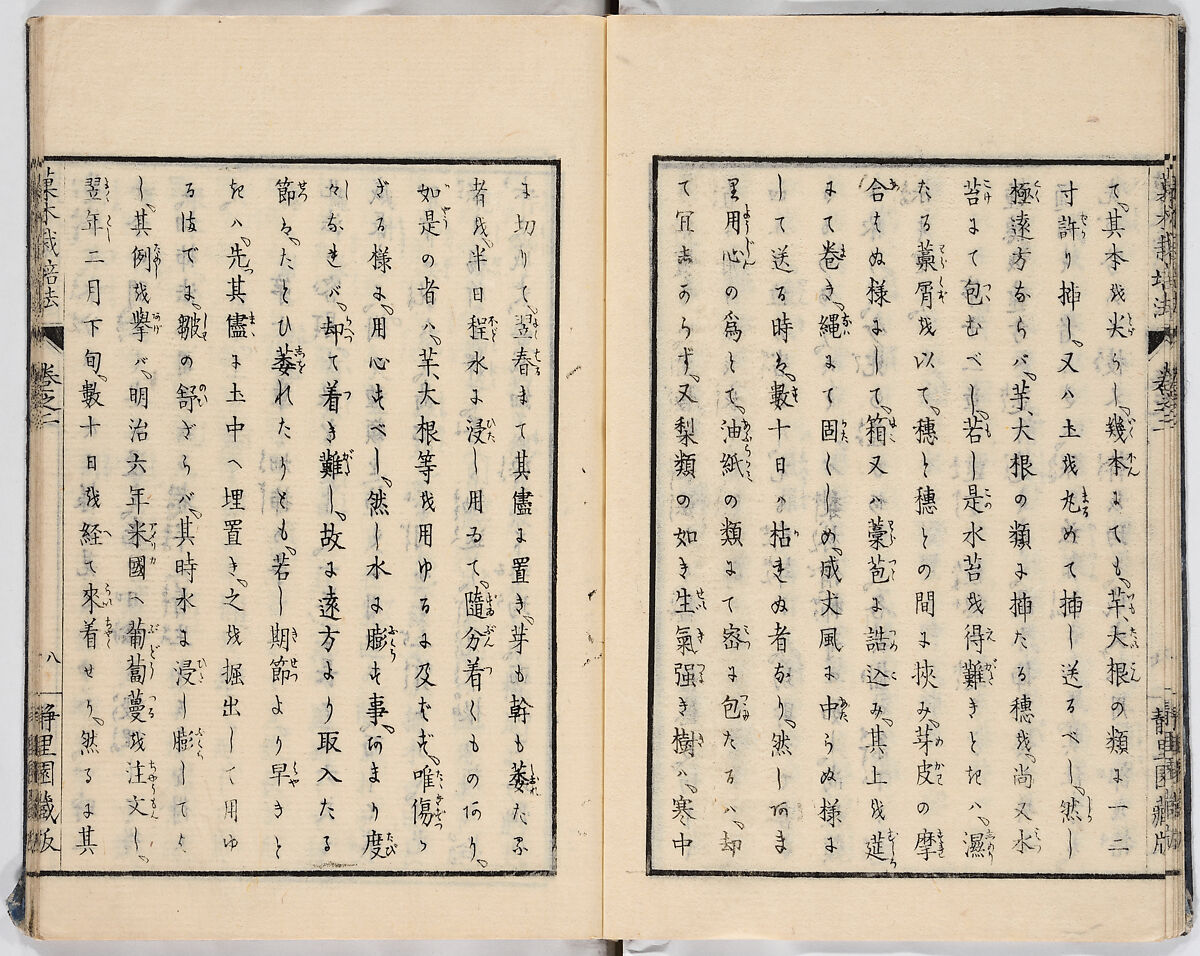 て、其本を尖らし、幾本にても、芋、大根の類に一二
寸許り挿し、又ハ土を丸めて挿し送るべし、然し
極遠方ならバ、芋、大根の類に挿たる穂を、尚又水
苔にて包むべし、若し是水苔を得難きときハ、濕
たる藁屑を以て、穂と穂との間に挾み、芽皮の摩
合はぬ様にして、箱又ハ藁苞に詰込み、其上を筵
にて巻き、縄にて固くしめ、成丈風に中らぬ様に
して送る時は、數十日は枯れぬ者なり、然しあま
り用心の爲とて、油紙の類にて密に包たるハ、却
て宜しからず、又梨類の如き生氣强き樹ハ、寒中
に切りて、翌春まて其儘に置き、芽も幹も萎たる
者を、半日程水に浸し用るて、隨分着くものあり、
如是の者ハ、芋、大根等を用ゆるに及ばず、唯傷か
ざる様に、用心すべし、然し水に膨す事、あまり度
々なれバ、却て着き難し、故に遠方より取入たる
節は、たとひ萎れたりとも、若し期節より早きと
きハ、先其儘に土中へ埋置き、之を掘出して用ゆ
る迠でに、皺の舒ざらバ、其時水に浸し膨してよ
し、其例を擧バ、明治六年米國へ葡萄蔓を注文し、
翌年二月下旬、數十日を経て來着せり、然るに其
菓木栽培法 巻之二 八 静里園藏版